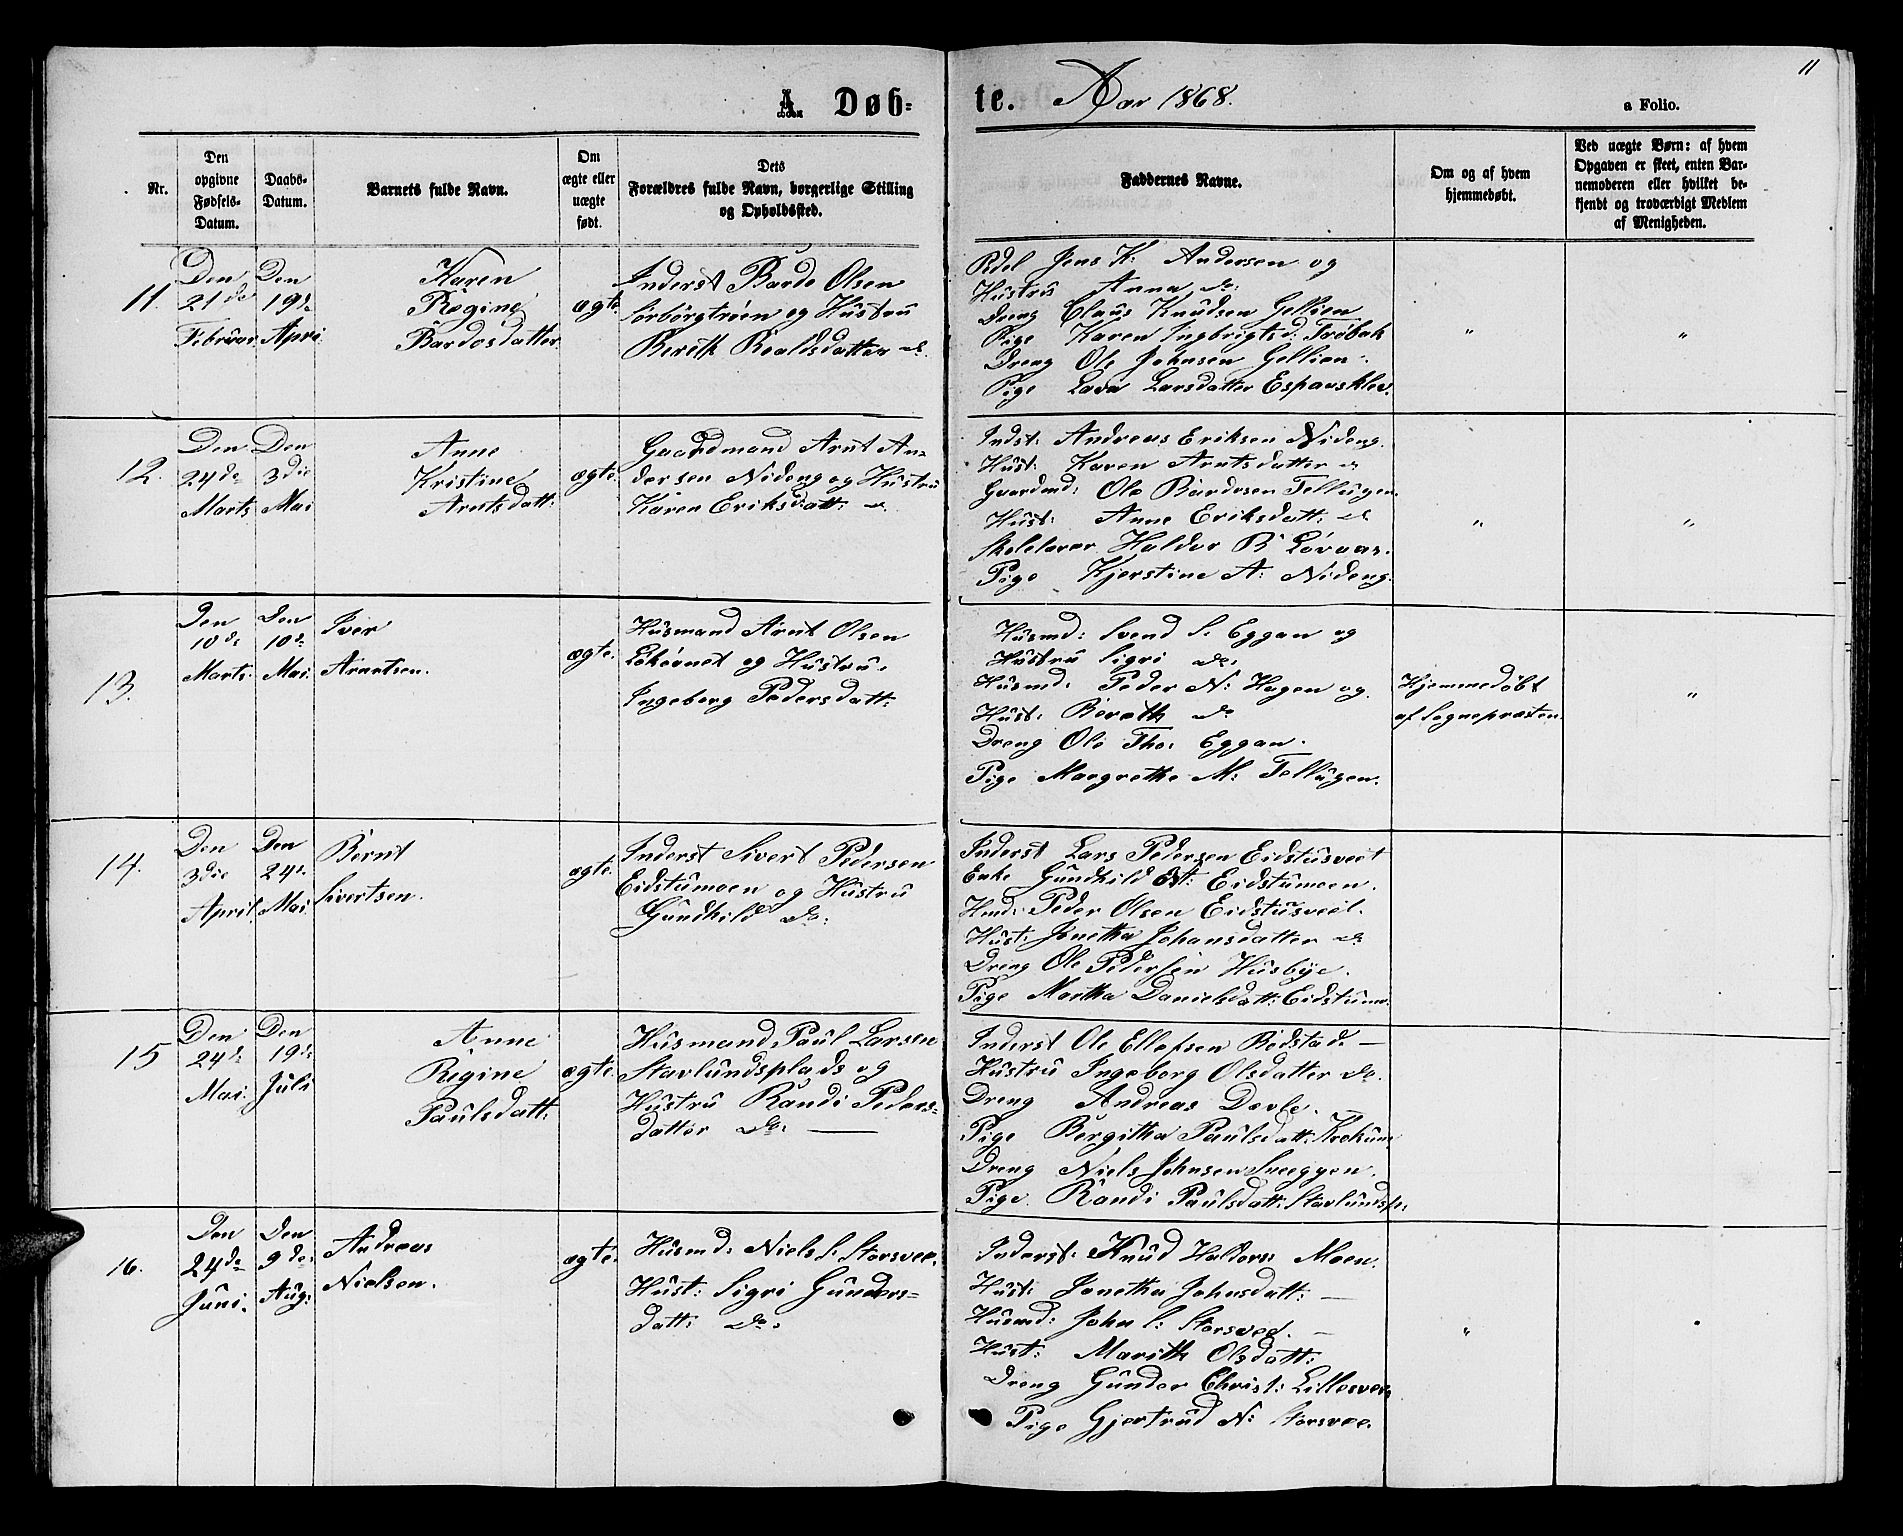 11
A. Døb-
te. Aar 1868.
a Folio.
Nr.
Den
opgivne
Fødsels-
Datum.
Daabs-
Datum.
Barnets fulde Navn.
Om
ægte eller
uægte
født.
Dets
Forældres fulde Navn, borgerlige Stilling
og Opholdssted.
Faddernes Navne.
Om og af hvem
hjemmedøbt.
Ved uægte Børn: af hvem
Opgaven er skeet, enten Bar-
nemoderen eller hvilket be-
kjendt og troværdigt Medlem
af Menigheden.
11.
Den
21de
Februar
Den
19de
Apri
Karen
Regine
Bardosdatter
ægte
Inderst Bardo Olsen
Sorborgtrøen og Hustru
Berith Roaldsdatter do.
Jens K. Andersen og
Hustru Anna do.
Dreng Claus Knudsen Gellien
Pige Karen Ingbrigtsd: Trøbak
Dreng Ole Johnsen Gellien.
Pige Lava Larsdatter Espaasklev.
"
"
12.
Den
24de
Marts
Den
3die
Mai
Anne
Kristine
Arntsdatt:
ægte.
Gaardmand Arnt An-
dersen Nideng og Hustru
Karen Eriksdatt: do
Indst: Andreas Eriksen Nideng.
Hust: Karen Arntsdatter do
Gaardmd: Ole Bardosen Tellugen.
Hust: Anne Eriksdatt: do
Skolelærer Haldor B. Løvaas.
Pige Kjerstine A: Nideng.
"
"
13.
Den
10de
Marts.
Den
10de
Mai.
Iver
Arntsen.
ægte.
Husmand Arnt Olsen
og Hustru.
Ingeborg Pedersdatt:
Husmd: Svend S. Eggan og
Hustru Sigri do.
Husmd: Peder N: Hagen og
Hust: Bereth do
Dreng Ole Tho: Eggan.
Pige Margrethe M: Tellugen.
Hjemmedøbt
af Sognepræsten.
"
14.
Den
3die
April
Den
24de
Mai.
Bernt
Sivertsen.
ægte.
Inderst Sivert Pedersen
Eidstumoen og Hustru
Gundhild do.
Inderst Lars Pedersen Eidstusveet
Enke Gundhild A: Eidstumoen.
Hmd: Peder Olsen Eidstusveet.
Hust: Jonetha Johansdatter do
Dreng Ole Pedersen Husbye.
Pige Martha Danielsdatt: Eidstumo.
15
Den
24de
Mai.
Den
19de
Juli
Anne
Regine
Paulsdatt:
ægte.
Husmand Paul Larsen
Stavlundsplads og
Hustru Randi Peders-
datter do.
Inderst Ole Ellefsen Bodstad. —
Hustru Ingeborg Olsdatter do.
Dreng Andreas Dovle.
Pige Bergitha Paulsdatt: Krokum
Dreng Niels Johnsen Sneeggen.
Pige. Randi Paulsdatt: Stavlundspl:
16.
Den
24de
Juni.
Den
9de.
Aug:
Andreas
Nielsen.
ægte.
Husmd: Niels S. Storsvee.
Hust: Sigri Gunders-
datt: do.
Inderst: Knud Haldors: Moen.
Hust: Jonetha Johnsdatt: —
Husmd: John S: Storsvee. —
Hust: Marith Olsdatt:
Dreng Gunder Christ: Lillesvee
Pige Gjertrud N: Storsvee.
"